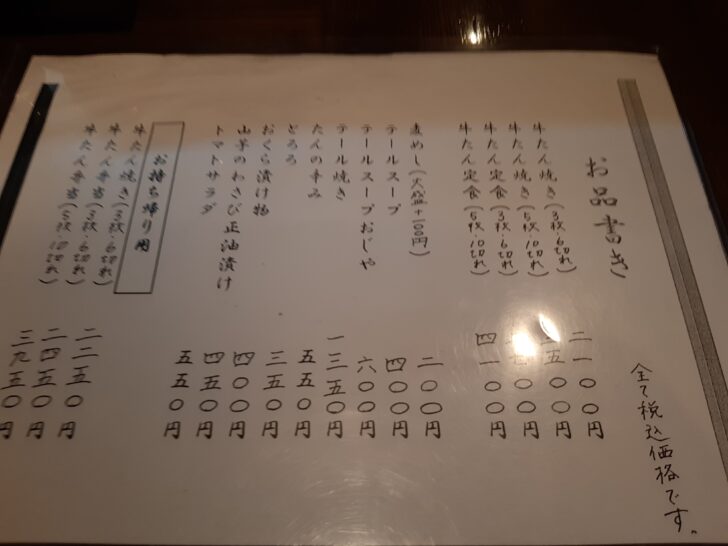 全て税込価格です。
お品書き
牛たん焼き(3枚・6切れ) 二一〇〇円
牛たん焼き(5枚・10切れ) 五〇〇円
牛たん定食(3枚・6切れ) 〇〇円
牛たん定食(5枚・10切れ) 四一〇〇円
麦めし(大盛+100円) 二〇〇円
テールスープ 四〇〇円
テールスープおじや 六〇〇円
テール焼き 一三五〇円
たんの辛み 五五〇円
とろろ 三五〇円
おくら漬け物 四〇〇円
山芋のわさび正油漬け 四五〇円
トマトサラダ 五五〇円
お持ち帰り用
牛たん焼き(3枚・6切れ) 二二五〇円
牛たん弁当(3枚・6切れ) 二四五〇円
牛たん弁当(5枚・10切れ) 三九五〇円